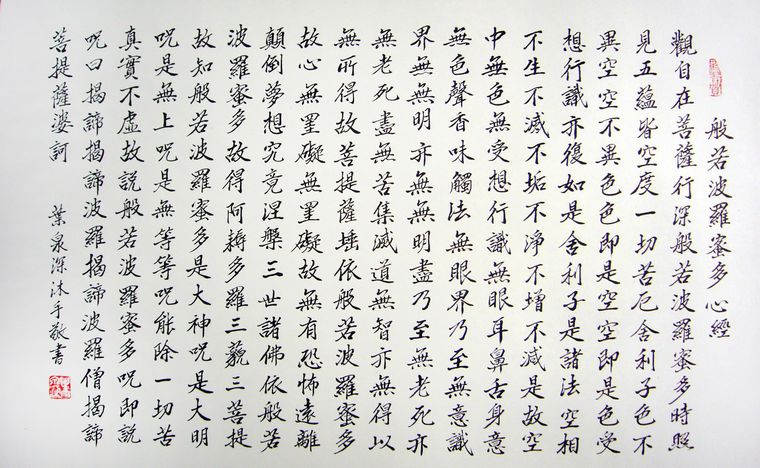 般若波羅蜜多心經
觀自在菩薩行深般若波羅蜜多時照
見五蘊皆空度一切苦厄舍利子色不
異空空不異色色即是空空即是色受
想行識亦復如是舍利子是諸法空相
不生不滅不垢不淨不增不減是故空
中無色無受想行識無眼耳鼻舌身意
無色聲香味觸法無眼界乃至無意識
界無無明亦無無明盡乃至無老死亦
無老死盡無苦集滅道無智亦無得以
無所得故菩提薩埵依般若波羅蜜多
故心無罣礙無罣礙故無有恐怖遠離
顛倒夢想究竟涅槃三世諸佛依般若
波羅蜜多故得阿耨多羅三藐三菩提
故知般若波羅蜜多是大神呪是大明
呪是無上呪是無等等呪能除一切苦
真實不虛故說般若波羅蜜多呪即說
呪曰揭諦揭諦波羅揭諦波羅僧揭諦
菩提薩婆訶 葉泉深沐手敬書